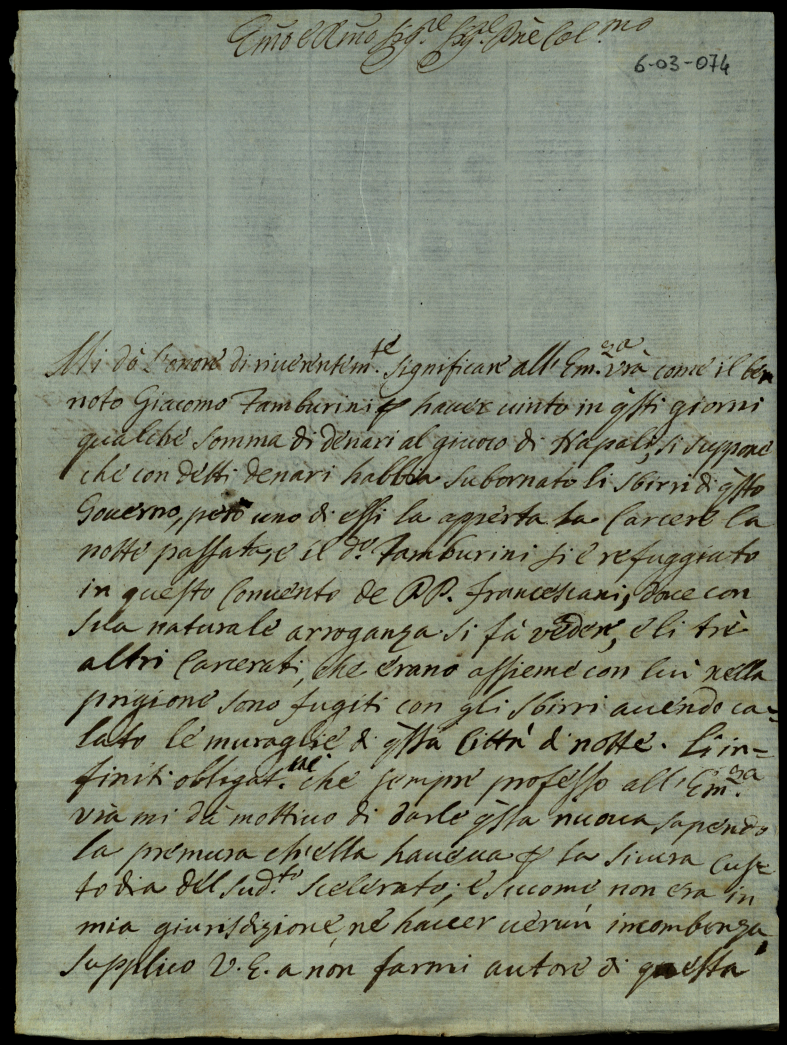 Emõ e Rmõ Sig.re Sig.re Pñe Col.mo
6-03-074
Mi dò l'onore di riuerentem.te significare all'Em.za vrã come il ben
noto Giacomo Tamburini p hauer uinto in qsti giorni
qualche somma di denari al giuoco di Napoli, si suppone
che con detti denari habbia subornato li sbirri di qsto
Gouerno, però uno di essi la aperta la Carcere la
notte passata, e il d.o Tamburini si è refuggiato
in questo Conuento de PP. Francescani, doue con
sua naturale arroganza si fà vedere, e li trè
altri Carcerati, che erano assieme con lui nella
prigione sono fugiti con gli sbirri auendo ca=
lato le muraglie di qsta Città di notte. Li in=
finiti obligat.ni che sempre professo all'Em.za
vrã mi dà mottiuo di darle qsta nuoua sapendo
la premura ch'ella haueua p la sicura cus=
todia del sud.to scelerato; e siccome non era in
mia giurisdizione, nè hauer uerun incombenza,
supplico V. E. a non farmi autore di questa